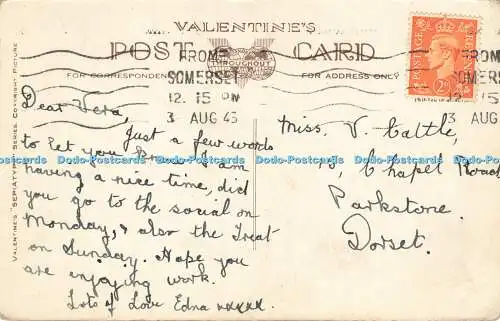 VALENTINE'S
POST CARD
THROUGHOUT
FOR CORRESPONDENCE
FOR ADDRESS ONLY
FROME
SOMERSET
12. 15 PM
3 AUG 43
FROME
SOMERSET
12. 15 PM
3 AUG 43
POSTAGE
2D
VALENTINES' "SEPIATYPE" SERIES. COPYRIGHT PICTURE
Dear Vera,
Just a few words
to let you know I am
having a nice time, did
you go to the social on
Monday, & also the Treat
on Sunday. Hope you
are enjoying work.
Lots of Love Edna xxxxx
Miss. V. Cattle,
Chapel Road
Parkstone.
Dorset.
Dodo-Postcards Dodo-Postcards Dodo-Postcards Dodo-Postcards Dodo-Postcards Dodo-Postcards